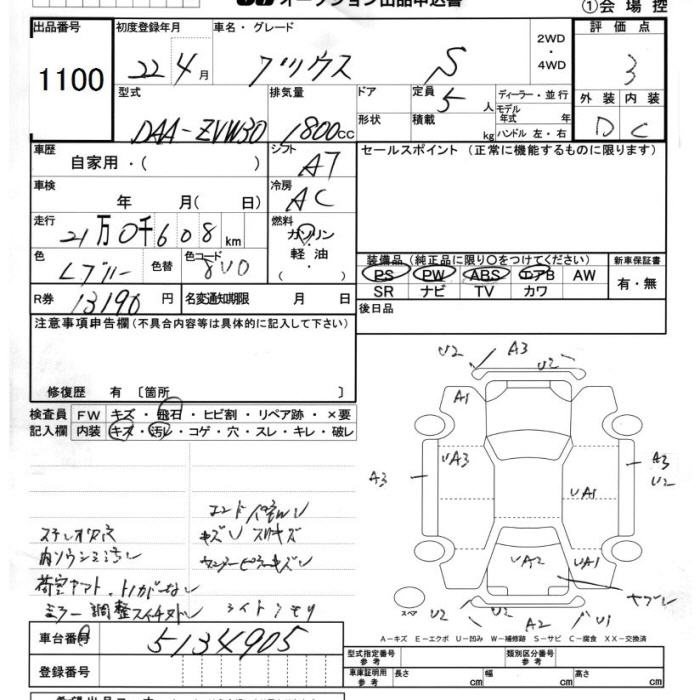 オークション出品申込書
①会場控
出品番号 初度登録年月 車名・グレード 評価点
1100
22 4月 プリウス S 2WD ・ 4WD 3
型式 排気量 ドア 定員 5人 ディーラー・並行 外装 内装
DAA-ZVW30 1800cc 形状 積載 kg モデル年式 年 ハンドル 左・右 D C
車歴 自家用・( ) シフト AT セールスポイント (正常に機能するものに限ります)
車検 年 月( 日) 冷房 AC
走行 21万0千608km 燃料 ガソリン・軽油・
色 Lブルー 色替 色コード 8V0
装備品 (純正品に限り○をつけてください) 新車保証書
PS PW ABS エアB AW 有・無
SR ナビ TV カワ
R券 13190円 名変通知期限 月 日
後日品
注意事項申告欄(不具合内容等は具体的に記入して下さい)
修復歴 有 〔箇所 〕
検査員 FW キズ・飛石・ヒビ割・リペア跡・×要
記入欄 内装 キズ・汚レ・コゲ・穴・スレ・キレ・破レ
U2 A3 U2
A1
A3 UA3 A3 U2
UA1
UA2 UA1
ヤブレ
スペア U2 U2 A2 U1
ステレオ欠
ミラー調整スイッチ
ライトクモリ
A-キズ E-エクボ U-凹み W-補修跡 S-サビ C-腐食 XX-交換済
車台番号 5134905
登録番号
型式指定番号 参考 類別区分番号 参考
車庫証明用 参考 長さ cm 幅 cm 高さ cm